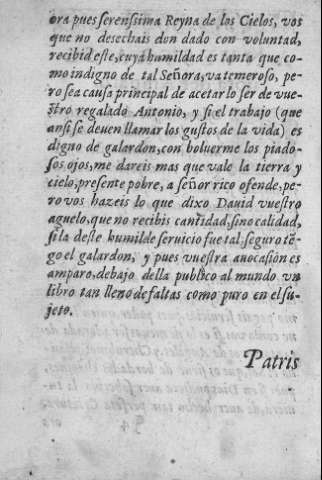 ora pues serenſsima Reyna de los Cielos, vos
que no desechais don dado con voluntad,
recibid eſte, cuya humildad es tanta que co-
mo indigno de tal Señora, va temeroſo, pe-
ro sea cauſa principal de acetarlo ſer de vue-
ſtro regalado Antonio, y ſi el trabajo (que
anſi ſe deuen llamar los guſtos de la vida) es
digno de galardon, con boluerme los piado-
ſos ojos, me dareis mas que vale la tierra y
cielo, preſente pobre, a señor rico ofende, pe-
ro vos hazeis lo que dixo Dauid vueſtro
aguelo, que no recibis cantidad, ſino calidad,
ſi la deſte humilde ſeruicio fue tal, seguro tẽ-
go el galardon, y pues vueſtra auocaſion es
amparo, debajo della publico al mundo vn
libro tan lleno de faltas como puro en el ſu-
jeto.
Patris